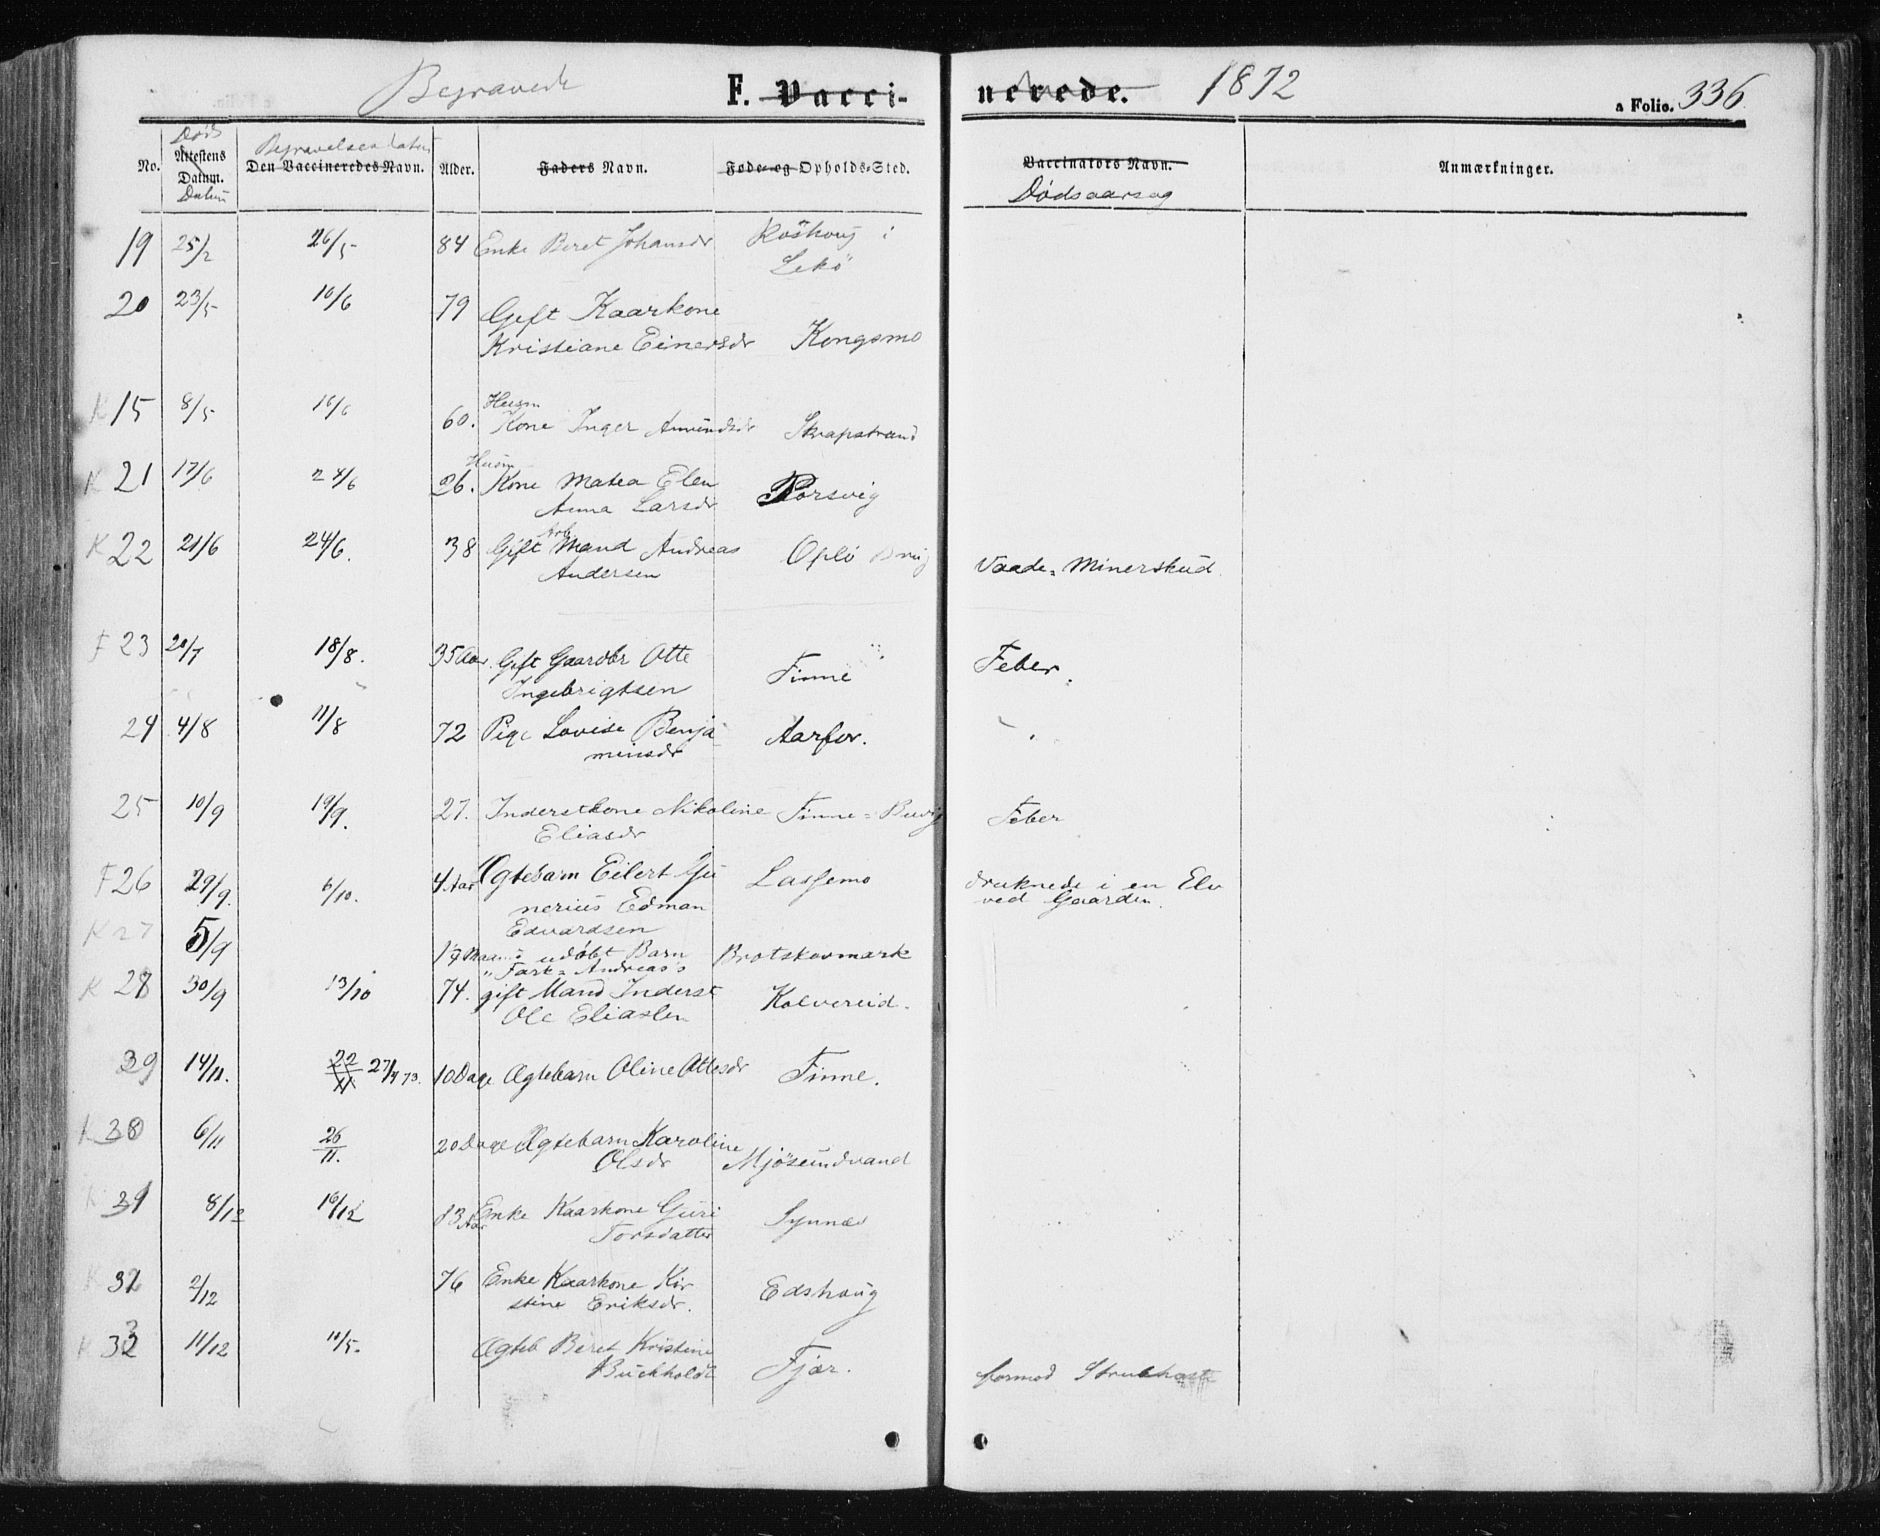 Begravede F. Vacci-
nerede. 1872 a Folio. 336
Døds Begravelsesdatum
No. Attestens Datum. Den Vaccineredes Navn. Alder. Faders Navn. Føde- og Opholds-Sted. Vaccinators Navn. Anmærkninger.
Datum Dødsaarsag
19 25/2 26/5 84 Enke Beret Johansdr Röshoug i
Lekö
20 23/5 16/6 79 Gift Kaarkone
Kristiane Einersdr Kongsmo
K 15 8/5 16/6 60. Husm
Kone Inger Amundsdr Skrapstrand
K 21 17/6 24/6 26. Husm
Kone Matea Elen Porsvig
Anna Larsdr
K 22 21/6 24/6. 38 Gift Arb Mand Andreas Oplö
Andersen Vaade = Minerskud.
F 23 20/7 18/8. 35 Aar. Gift Gaardbr Otte
Ingebrigtsen Finne Feber.
24 4/8 11/8 72 Pige Lovise Benja Aarfor.
minsdr
25 10/9 19/9. 27. Inderstkone Nikoline Finne = Buvig Feber
Eliasdr
F 26 29/9. 6/10. 4 Aar Ægtebarn Eilert Gu Lassemo druknede i en Elv
nerius Edman ved Gaarden.
Edvardsen
K 27 5/9 udøbt Barn Brotskovmark
Andreas's
K 28 30/9 13/10 74. gift Mand Inderst Kolvereid.
Ole Eliassen
29 14/11. 22/11 27/4 73. 10 Dage Ægtebarn Oline Ottesdr Finne.
K 30 6/11 26/11. 20 Dage Ægtebarn Karoline
Olsdr Mjösundvand
K 31 8/12 16/12 83 Aar Enke Kaarkone Guri Synnes
Torsdatter
K 32 2/12 76 Enke Kaarkone Kir Edshoug
stine Eriksdr.
K 33 11/12 11/5. Ægteb Beret Kristine
Buchholdt Fjær. formod Strubhoste